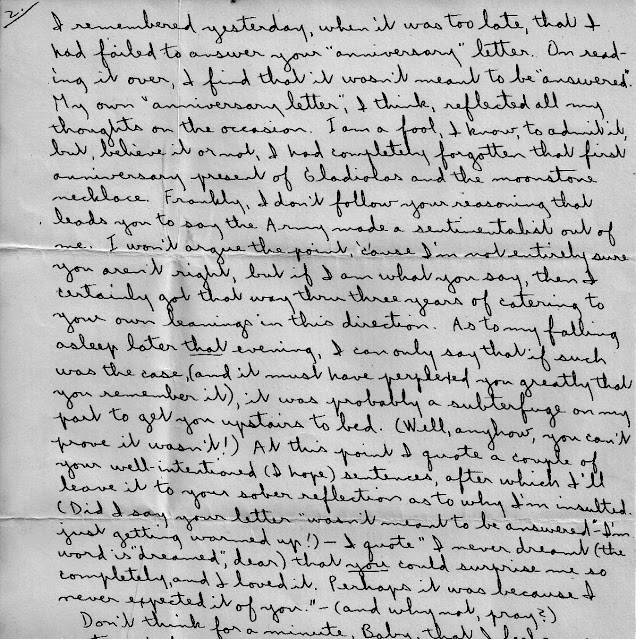 2.
I remembered yesterday, when it was too late, that I
had failed to answer your "anniversary" letter. On read-
ing it over, I find that it wasn't meant to be "answered".
My own "anniversary letter", I think, reflected all my
thoughts on the occasion. I am a fool, I know, to admit it,
but, believe it or not, I had completely forgotten that first
anniversary present of Gladiolas and the moonstone
necklace. Frankly, I don't follow your reasoning that
leads you to say the Army made a sentimentalist out of
me. I won't argue the point, 'cause I'm not entirely sure
you aren't right, but if I am what you say, then I
certainly got that way thru three years of catering to
your own leanings in this direction. As to my falling
asleep later that evening, I can only say that if such
was the case, (and it must have perplexed you greatly that
you remember it), it was probably a subterfuge on my
part to get you upstairs to bed. (Well, anyhow, you can't
prove it wasn't!) At this point I quote a couple of
your well-intentioned (I hope) sentences, after which I'll
leave it to your sober reflection as to why I'm insulted.
(Did I say your letter "wasn't meant to be answered" - I'm
just getting warmed up!) - I quote " I never dreamt (the
word is "dreamed", dear) that you could surprise me so
completely, and I loved it. Perhaps it was because I
never expected it of you." - (and why not, pray?)
Don't think for a minute, Baby, that I